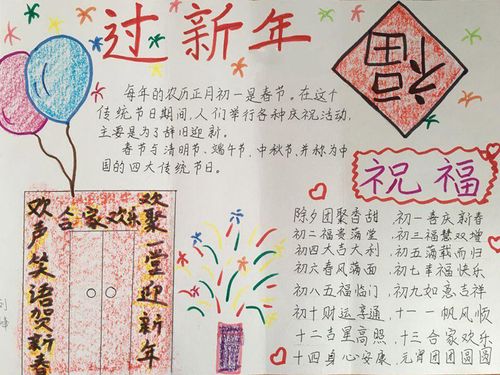 过新年
福
每年的农历正月初一是春节。在这个
传统节日期间,人们举行各种庆祝活动,
主要是为了辞旧迎新。
春节与清明节、端午节、中秋节,并称为中
国的四大传统节日。
祝福
除夕团聚香甜 初一喜庆新春
初二福安满堂 初三福慧双增
初四大吉大利 初五满载而归
初六春风满面 初七幸福快乐
初八五福临门 初九如意吉祥
初十财运亨通 十一一帆风顺
十二吉星高照 十三合家欢乐
十四身心安康 元宵团团圆圆
合家欢乐
欢声笑语贺新春
欢聚一堂迎新年